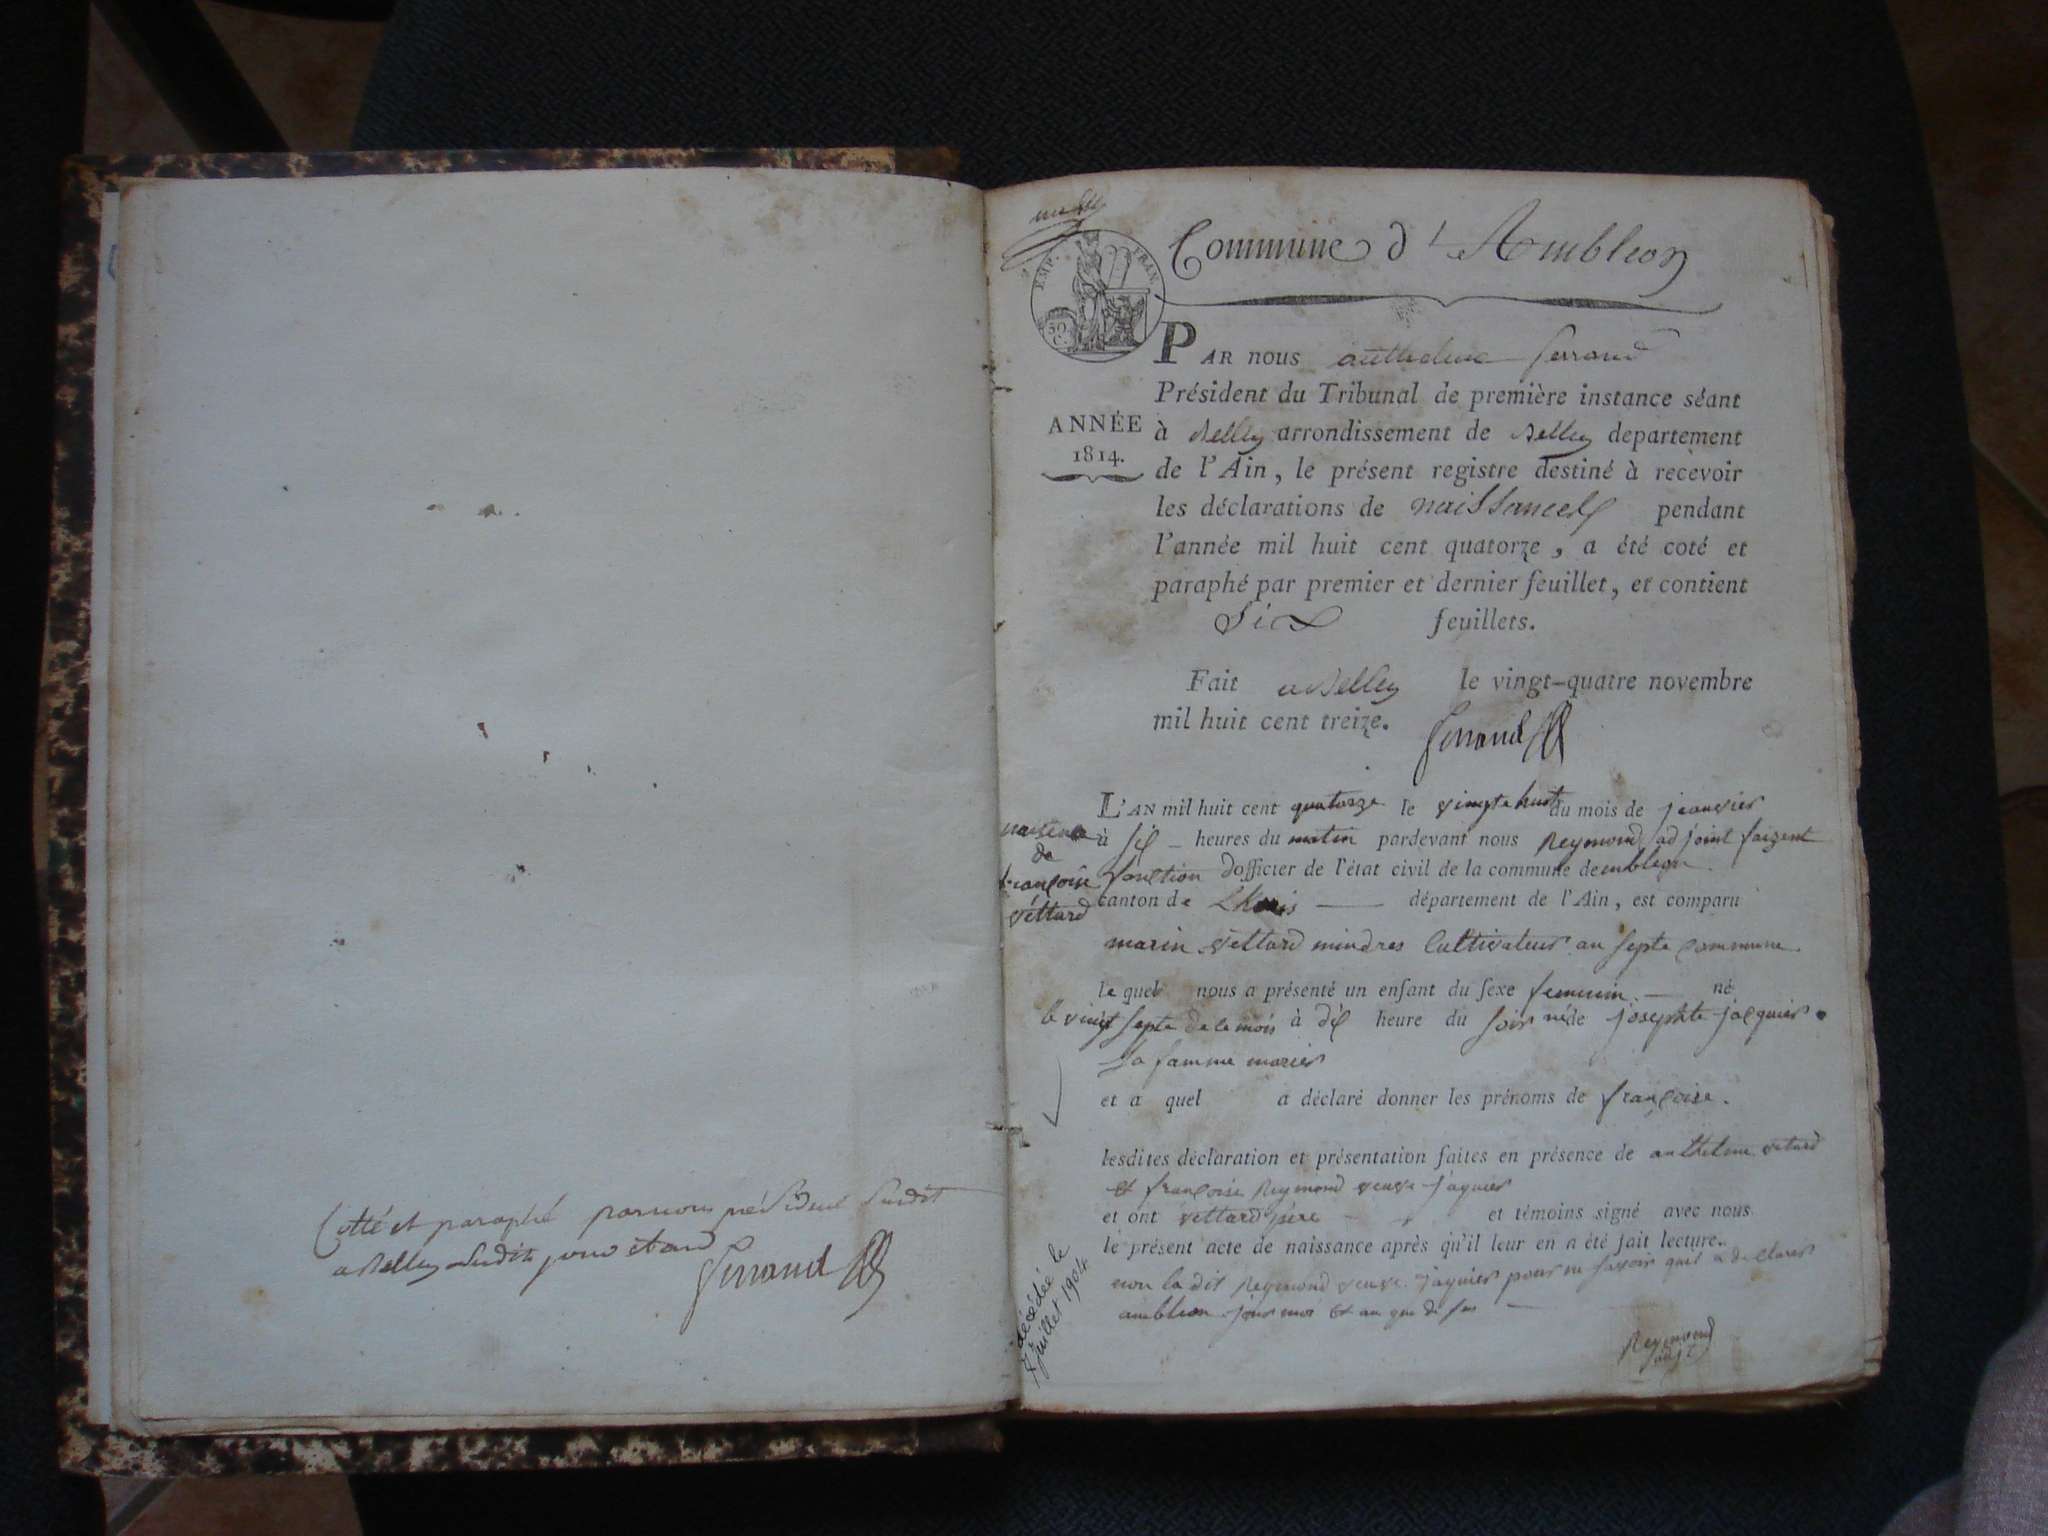 Cotté et paraphé par nous président susdit
a Belley susdits jour et an
Ferrand
EMP. FRAN.
50 C.
Commune d'Ambleon
ANNÉE
1814.
PAR nous anthelme ferrand
Président du Tribunal de première instance séant
à Belley arrondissement de Belley departement
de l'Ain, le présent registre destiné à recevoir
les déclarations de naissances pendant
l'année mil huit cent quatorze, a été coté et
paraphé par premier et dernier feuillet, et contient
Six feuillets.
Fait a Belley le vingt-quatre novembre
mil huit cent treize.
Ferrand
naisence
de
françoise
vettard
L'AN mil huit cent quatorze le vingte huit du mois de jeanvier
à six heures du matin pardevant nous Reymond adjoint faizent
fonction d'officier de l'état civil de la commune dembleon
canton de Lhuis département de l'Ain, est comparu
marin vettard mindres Cultivateur au septe commune
le quel nous a présenté un enfant du sexe feminin né
le vingt septe de ce mois à dix heure du soir né de josephte jacquier
sa famme marier
et a quel a déclaré donner les prénoms de françoise.
lesdites déclaration et présentation faites en présence de anthelme vetard
et françoise Reymond veuve jaquier
et ont vettard père et témoins signé avec nous
le présent acte de naissance après qu'il leur en a été fait lecture.
non la dit Reymond veuve jaquier pour ne savoir quel a de clarer
amblion jour moi et an que de sus
Reymond
adjt
décédée le
7 juillet 1904